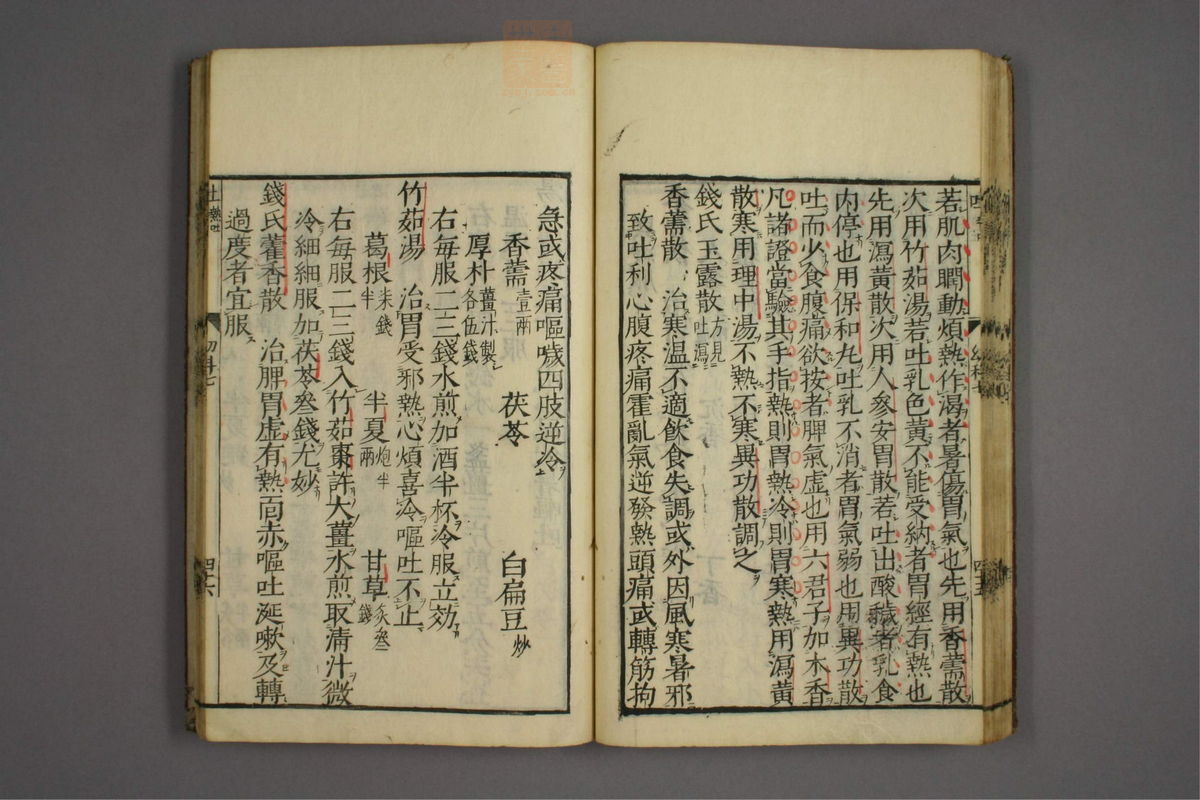 若肌肉瞤動煩熱作渴者暑傷胃氣也先用香薷散
次用竹茹湯若吐乳色黃不能受納者胃經有熱也
先用瀉黃散次用人參安胃散若吐出酸穢者乳食
內停也用保和丸吐乳不消者胃氣弱也用異功散
吐而少食腹痛欲按者脾氣虛也用六君子加木香
凡諸證當驗其手指熱則胃熱冷則胃寒熱用瀉黃
散寒用理中湯不熱不寒異功散調之
錢氏玉露散方見吐瀉
香薷散 治寒溫不適飲食失調或外因風寒暑邪
致吐利心腹疼痛霍亂氣逆發熱頭痛或轉筋拘
四十五
急或疼痛嘔噦四肢逆冷
香薷壹兩 茯苓 白扁豆炒
厚朴薑汁製各伍錢
右每服二三錢水煎加酒半杯冷服立効
竹茹湯 治胃受邪熱心煩喜冷嘔吐不止
葛根柒錢半 半夏炮半兩 甘草灸叁錢
右每服二三錢入竹茹棗許大薑水煎取清汁微
冷細細服加茯苓叁錢尤妙
錢氏藿香散 治脾胃虛有熱面赤嘔吐涎嗽及轉
過度者宜服
吐 熱吐
幼科七
四十六